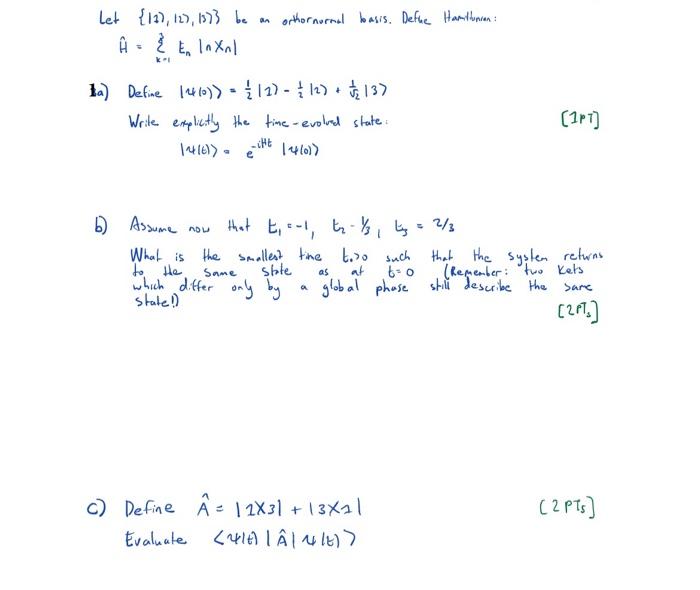 Let {|1⟩, |2⟩, |3⟩} be an orthornormal basis. Define Hamiltonian:
Ĥ = Σ_{k=1}^{3} E_n |n⟩⟨n|
1a) Define |Ψ(0)⟩ = 1/2 |1⟩ - 1/2 |2⟩ + 1/√2 |3⟩
Write explicitly the time-evolved state: [1PT]
|Ψ(t)⟩ = e^{-iHt} |Ψ(0)⟩
b) Assume now that E₁ = -1, E₂ - 1/3, E₃ = 2/3
What is the smallest time t>0 such that the system returns
to the same state as at t=0 (Remember: two kets
which differ only by a global phase still describe the same
state!)
[2PTs]
c) Define Â = |1⟩⟨3| + |3⟩⟨1| [2PTs]
Evaluate ⟨Ψ(t)|Â|Ψ(t)⟩